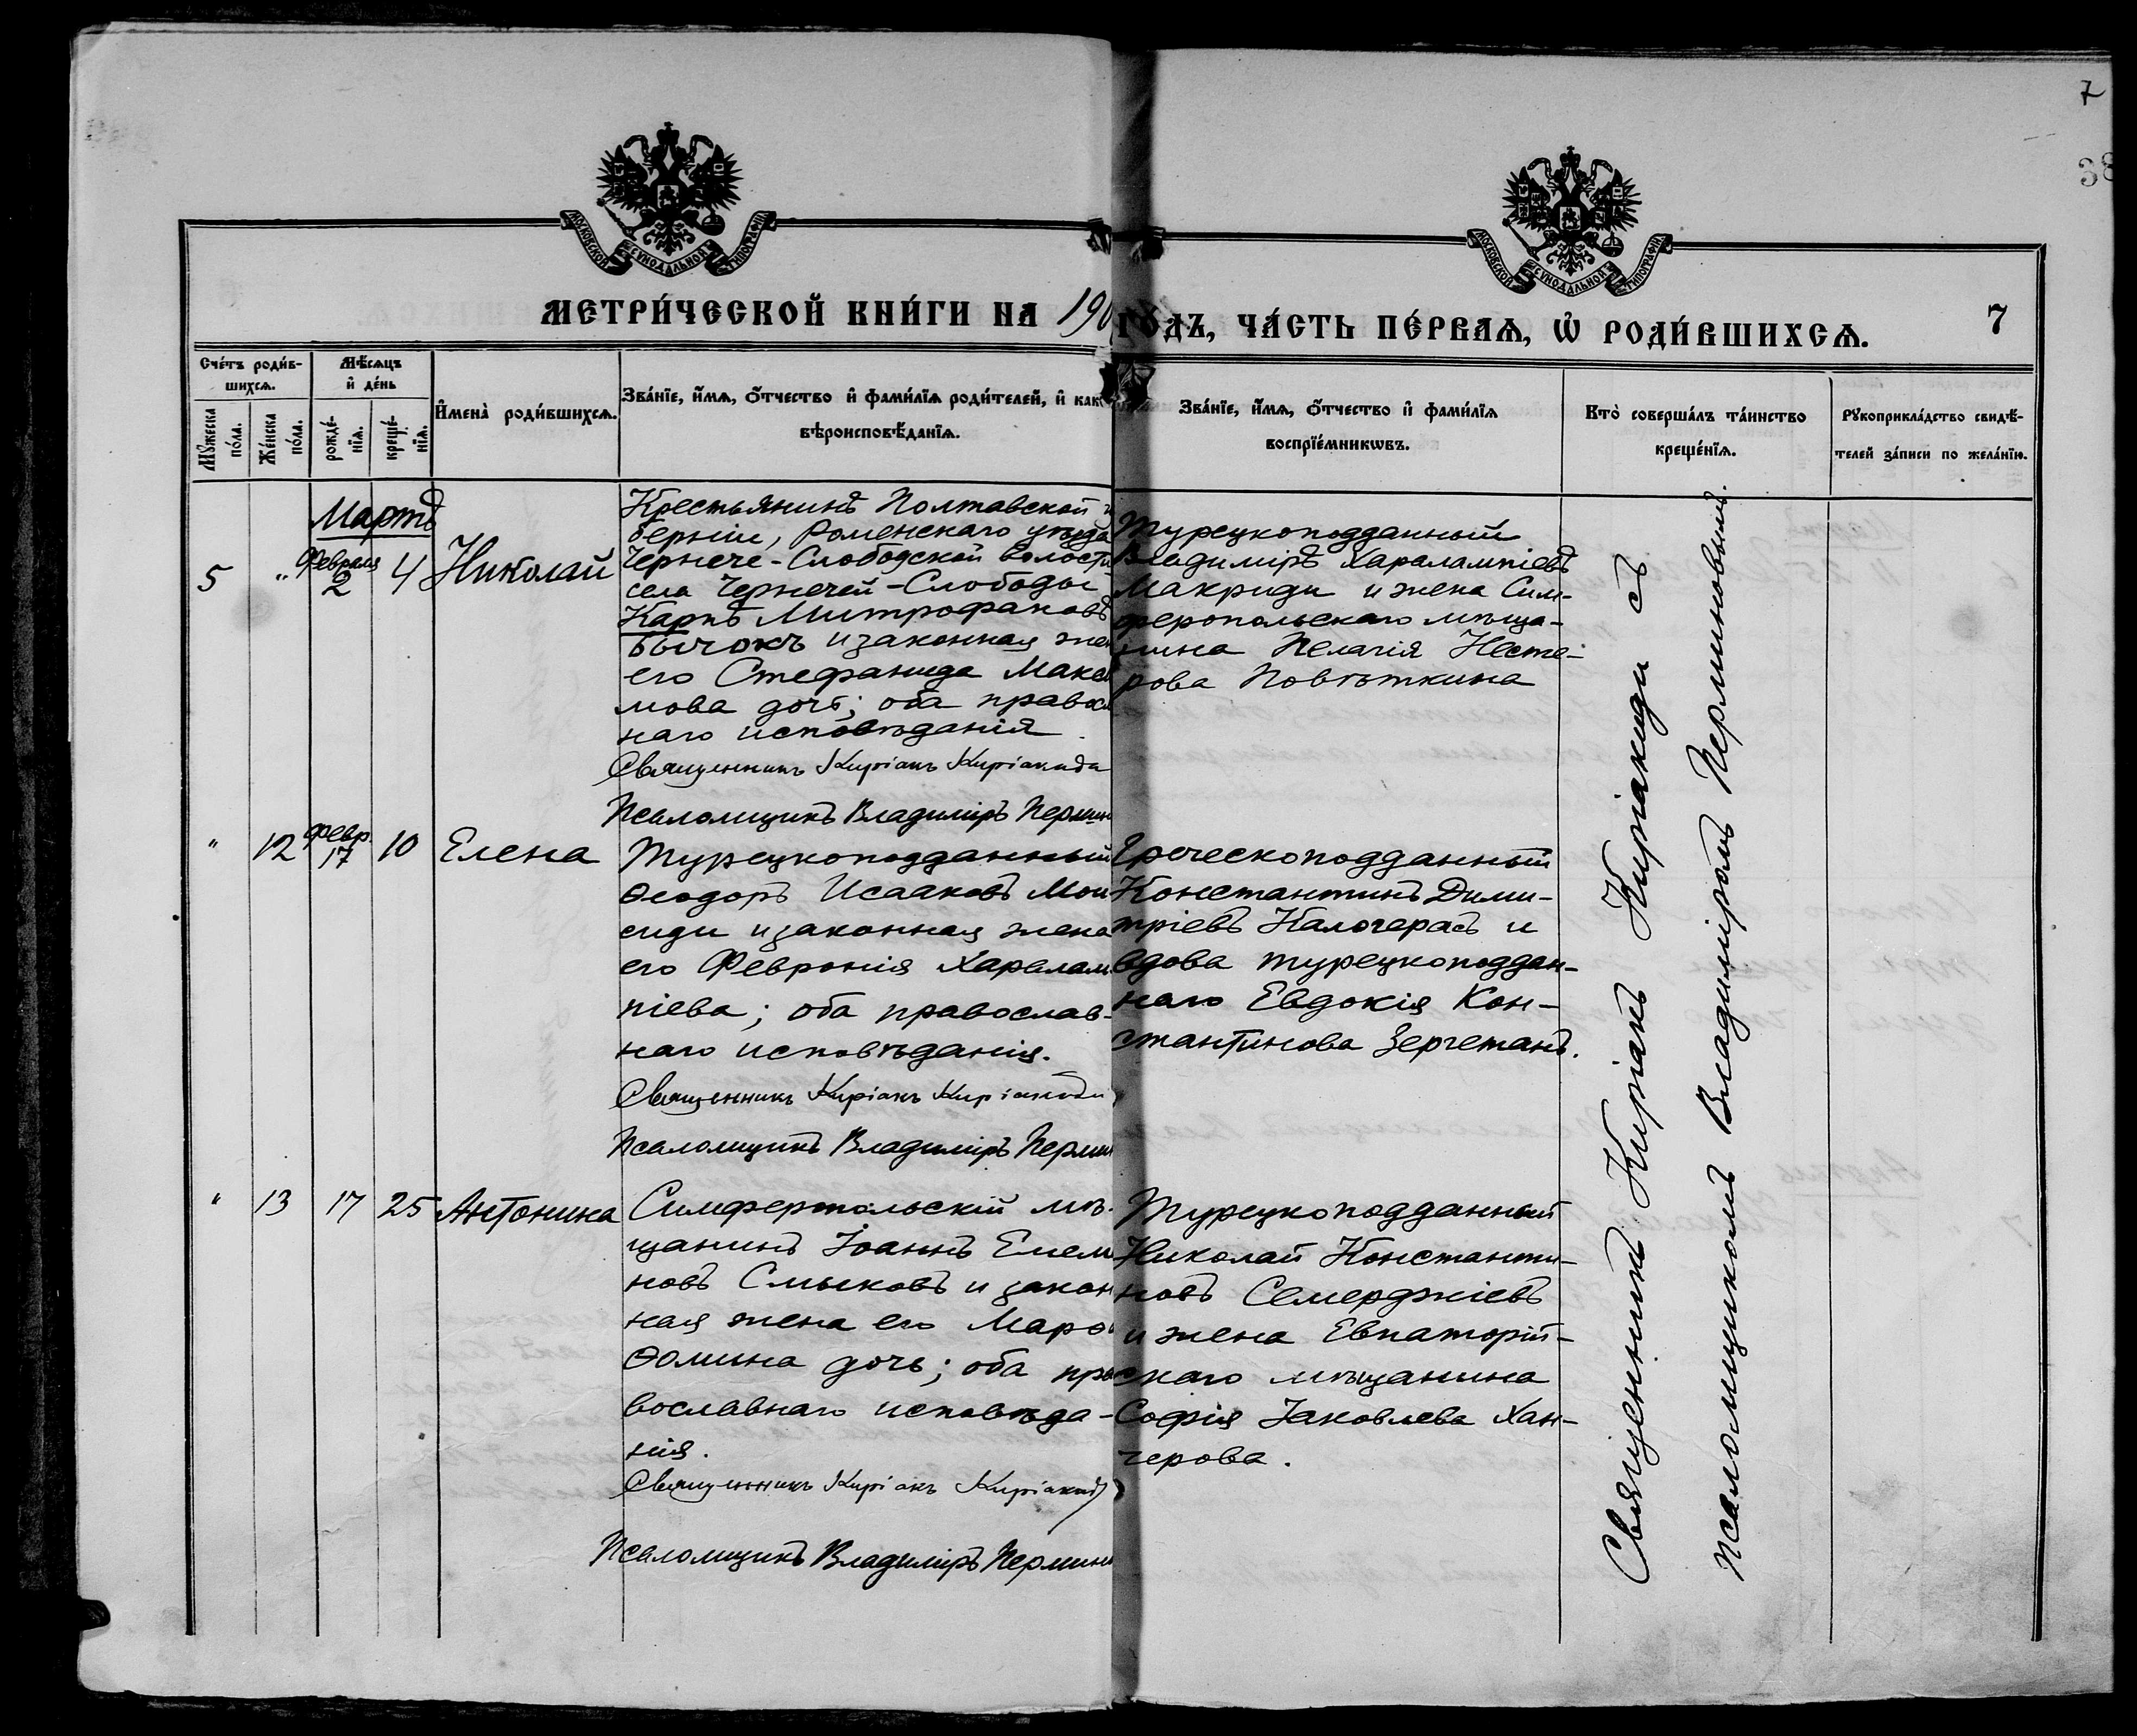 7
38
МОСКОВСКОЙ СѴНОДАЛЬНОЙ ТИПОГРАФІИ
МОСКОВСКОЙ СѴНОДАЛЬНОЙ ТИПОГРАФІИ
МЕТРИ́ЧЕСКОЙ КНИ́ГИ НА 190
ГО́ДЪ, ЧА́СТЬ ПЕ́РВАѦ, Ѽ РОДИ́ВШИХСѦ.
7
Сче́тъ роди́в-
шихсѧ.
Мꙋ́жеска
по́ла.
Же́нска
по́ла.
Мѣ́сѧцъ
и҆ де́нь
рожде́-
нїѧ.
креще́-
нїѧ.
И҆мена̀ роди́вшихсѧ.
Зва́нїе, и҆́мѧ, ѻ҆́тчество и҆ фами́лїѧ роди́телей, и҆ как
вѣроисповѣ́данїѧ.
Зва́нїе, и҆́мѧ, ѻ҆́тчество и҆ фами́лїѧ
воспрїе́мникѡвъ.
Кто̀ соверша́лъ та́инство
креще́нїѧ.
Рꙋкоприкла́дство свидѣ́-
телей за́писи по жела́нїю.
Мартъ
5 " Февраля 2 4 Николай
Крестьянинъ Полтавской гу
берніи, Роменскаго уѣзда
Чернече-Слободской волости
села Чернечей-Слободы
Карпъ Митрофановъ
Бычокъ и законная жен
его Стефанида Макси
мова дочь; оба правосл
наго исповѣданія.
Священникъ Киріакъ Киріакиди
Псаломщикъ Владиміръ Пермин
Турецкоподданный
Владиміръ Харалампіевъ
Макриди и жена Сим-
феропольскаго мѣща-
нина Пелагія Несте-
рова Повѣткина
" 12 Февр. 17 10 Елена
Турецкоподданный
Ѳеодоръ Исааковъ Мои
сиди и законная жена
его Февронія Харалам
піева; оба православ-
наго исповѣданія.
Священникъ Киріакъ Киріакиди
Псаломщикъ Владиміръ Перми
Греческоподданный
Константинъ Дими-
тріевъ Калогерасъ и
вдова турецкоподдан-
наго Евдокія Кон-
стантинова Зергетанъ.
" 13 17 25 Антонина
Симферопольскій мѣ-
щанинъ Іоаннъ Емелья
новъ Смыковъ и закон
ная жена его Марѳа
Ѳомина дочь; оба пра
вославнаго исповѣда-
нія.
Священникъ Киріакъ Киріакиди
Псаломщикъ Владиміръ Пермин
Турецкоподданный
Николай Константи-
новъ Семерджіевъ
и жена Евпаторій-
скаго мѣщанина
Софія Іаковлева Хан-
черова.
Священникъ Киріакъ Киріакиди съ
псаломщикомъ Владиміромъ Перминовымъ.